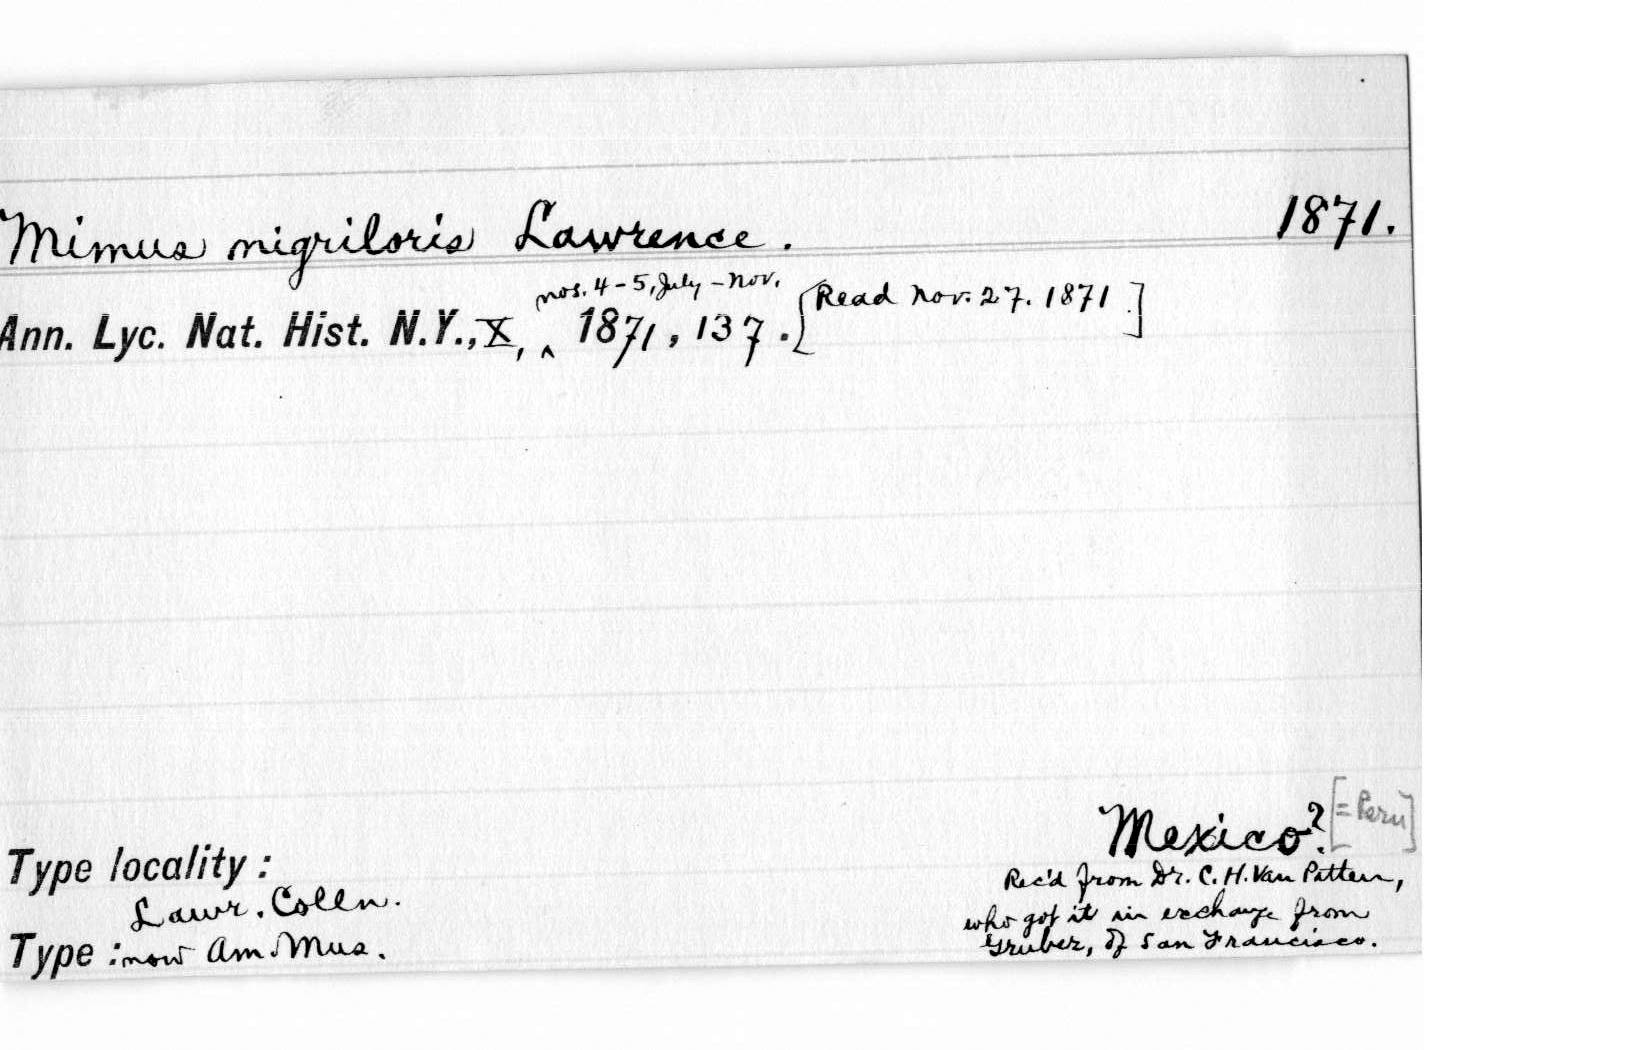 Mimus nigriloris Lawrence. 1871.
nos. 4-5, July-Nov.
Ann. Lyc. Nat. Hist. N.Y., X, ^ 1871, 137. [Read Nov. 27. 1871.]
Mexico? [=Peru]
Type locality:
Rec'd from Dr. C. H. Van Patten,
Lawr. Colln.
who got it in exchange from
Type: now Am. Mus.
Gruber, of San Francisco.